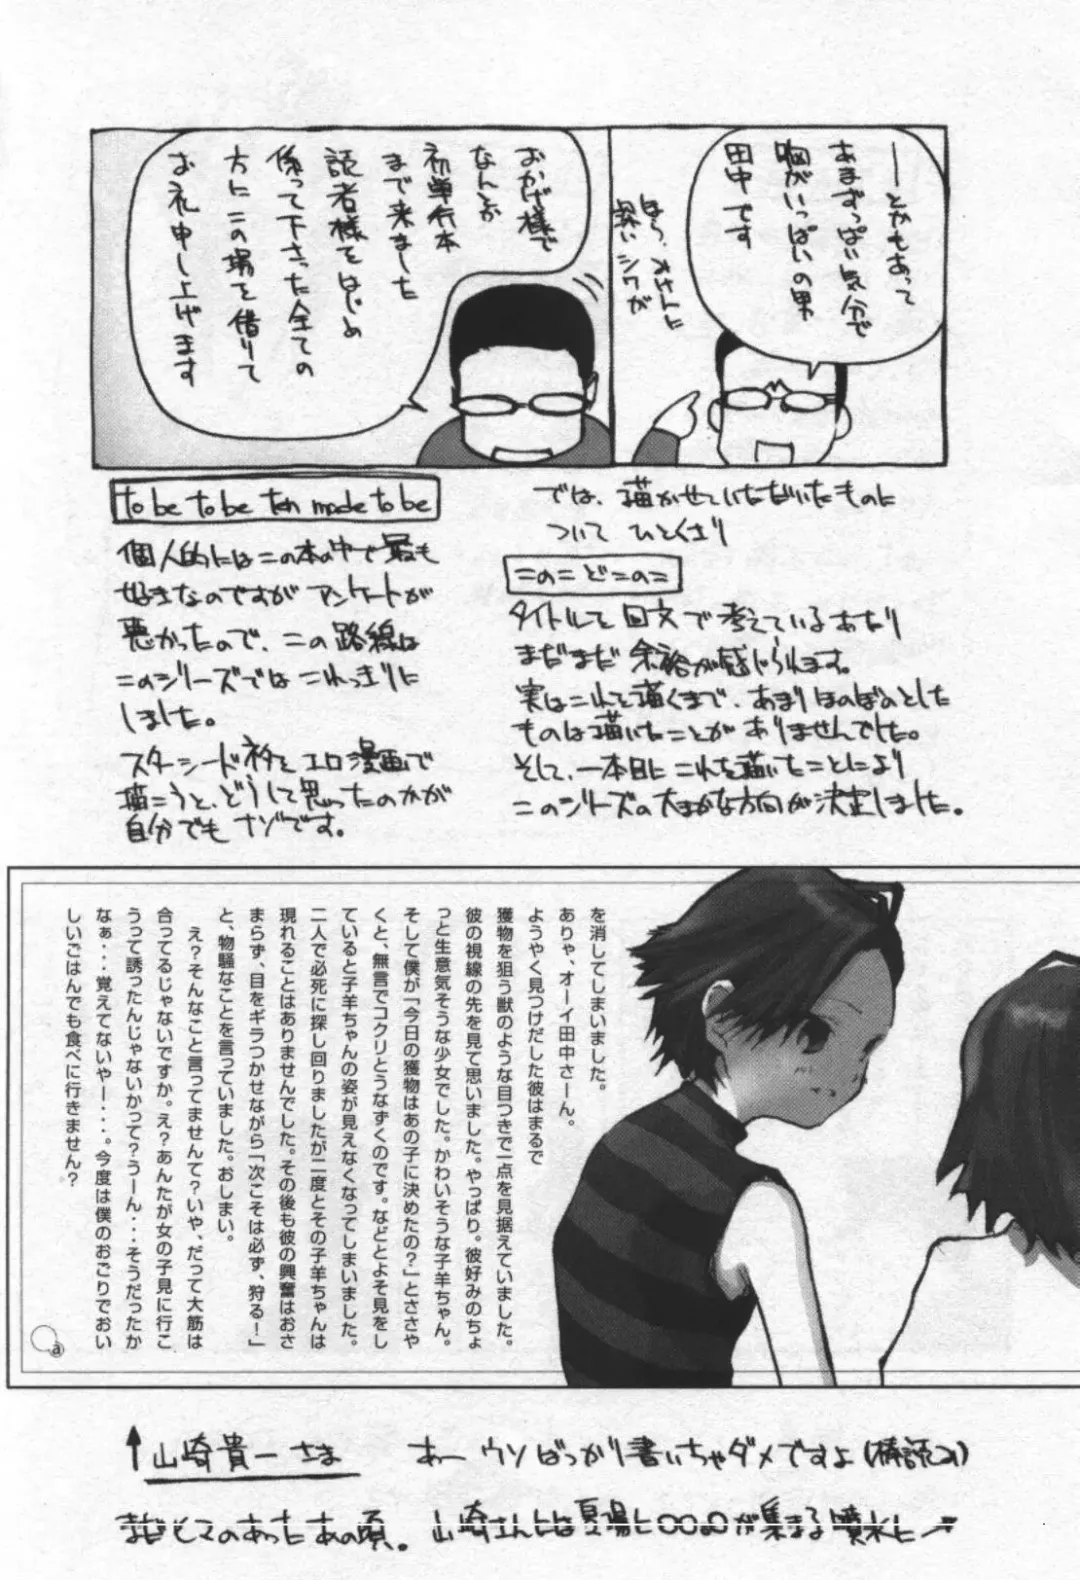 ――とかもあって
あまずっぱい気分で
胸がいっぱいの男
田中です
ほら、オサムに
深いシワが
おかげ様で
なんとか
初単行本
まで来ました
読者様をはじめ
係って下さった全ての
方にこの場を借りて
お礼申し上げます
では、描かせていただいたものに
ついて ひとくさり
このこ どこのこ
タイトルを回文で考えているあたり
まだまだ 余裕が感じられます。
実はこれを描くまで、あまりほのぼのとした
ものは描いたことがありませんでした。
そして、一本目にこれを描いたことにより
このシリーズの大まかな方向が決定しました。
to be to be ten made to be
個人的にはこの本の中で最も
好きなのですが アンケートが
悪かったので、この路線は
このシリーズではこれっきりに
しました。
スターシード衿をエロ漫画で
描こうと、どうして思ったのかが
自分でもナゾです。
を消してしまいました。
ありゃ、オーイ田中さーん。
ようやく見つけだした彼はまるで
獲物を狙う獣のような目つきで一点を見据えていました。
彼の視線の先を見て思いました。やっぱり。彼好みのちょ
っと生意気そうな少女でした。かわいそうな子羊ちゃん。
そして僕が「今日の獲物はあの子に決めたの？」とささや
くと、無言でコクリとうなずくのです。などとよそ見をし
ていると子羊ちゃんの姿が見えなくなってしまいました。
二人で必死に探し回りましたが二度とその子羊ちゃんは
現れることはありませんでした。その後も彼の興奮はおさ
まらず、目をギラつかせながら「次こそは必ず、狩る！」
と、物騒なことを言っていました。おしまい。
え？そんなこと言ってませんて？いや、だって大筋は
合ってるじゃないですか。え？あんたが女の子見に行こ
うって誘ったんじゃないかって？うーん・・・そうだったか
なぁ・・・覚えてないやー・・・。今度は僕のおごりでおい
しいごはんでも食べに行きません？
a
↑山崎貴一さま　あー ウソばっかり書いちゃダメですよ(棒読み)
まだヒマのあったあの頃。山崎さんとは夏場に○○○が集まる噴水に